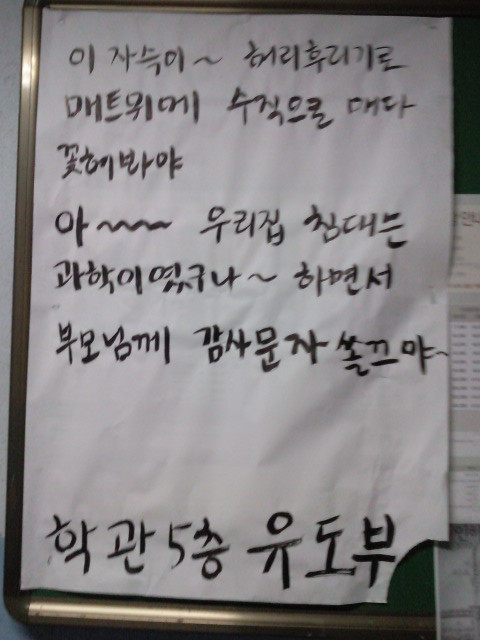 이 자슥이~ 허리후리기로
매트위에 수직으로 매다
꽃혀봐야
아~~~ 우리집 침대는
과학이였구나~ 하면서
부모님께 감사문자 쏠끄야~
학관5층 유도부